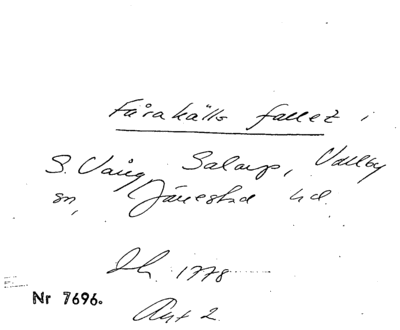 Fårakälls fallet i
S. Vång, Salarp, Vallby
sn, Järrestad hd.
Dh. 1778
Akt 2
Nr 7696.